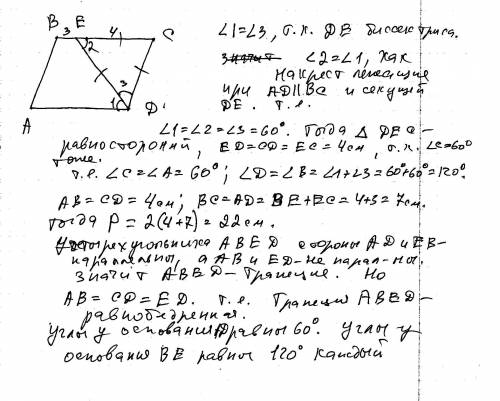 B 3 E 4 C
2
3
1
A D
∠1=∠3, т.к. DE биссектриса.
значит ∠2=∠1, как
накрест лежащие
при AD∥BC и секущей
DE. т.е.
∠1=∠2=∠3=60°. Тогда △ DEC -
равносторонний, ED=CD=EC=4см, т.к. ∠C=60°
тоже.
т.е. ∠C=∠A=60°; ∠D=∠B=∠1+∠3=60°+60°=120°.
AB=CD=4см; BC=AD=BE+EC=4+3=7см.
Тогда P=2(4+7)=22см.
Учетырехугольника ABED стороны AD и EB-
параллельны, а AB и ED-не парал-ны.
значит ABED-трапеция. Но
AB=CD=ED. т.е. Трапеция ABED-
равнобедренная.
Углы у основания D равны 60°. Углы у
основания BE равны 120° каждый